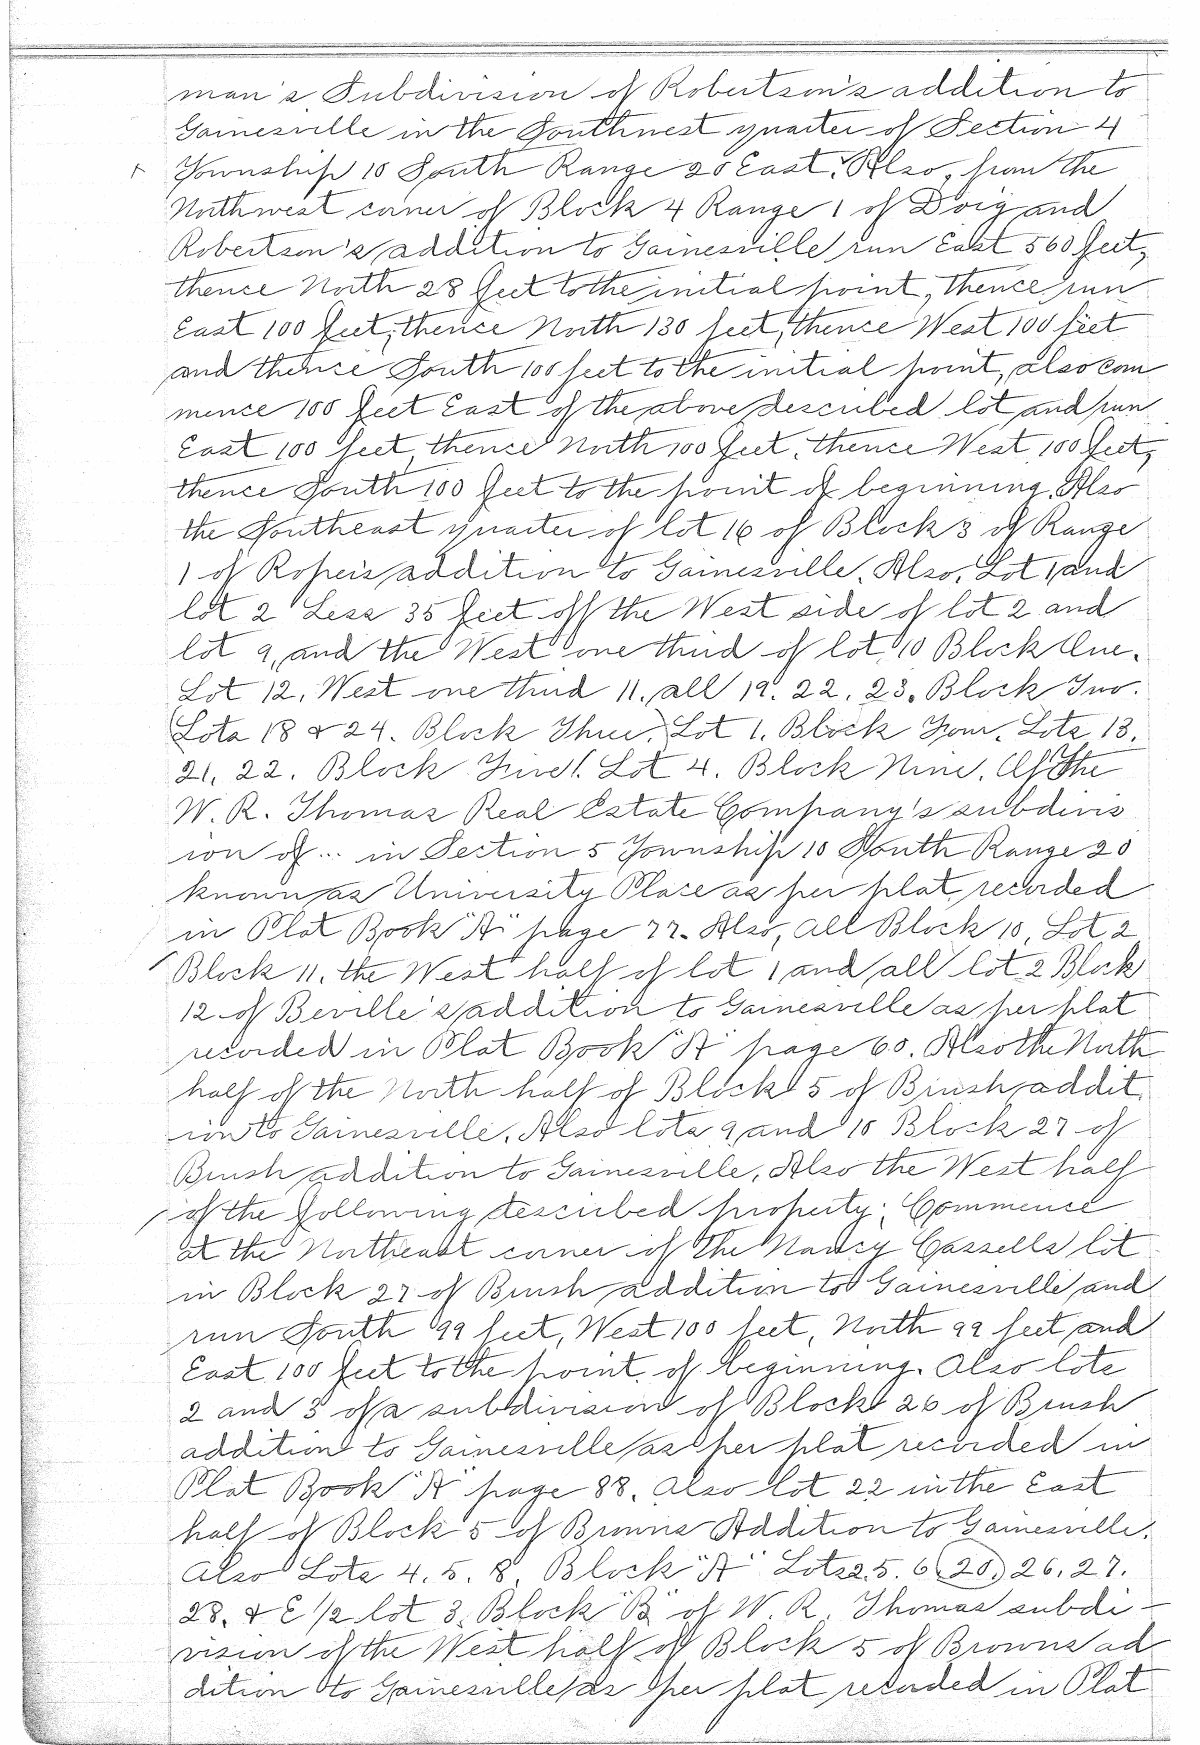 man's Subdivision of Robertson's addition to
Gainesville in the Southwest quarter of Section 4
Township 10 South Range 20 East. Also, from the
Northwest corner of Block 4 Range 1 of Doig and
Robertson's addition to Gainesville run East 560 feet,
thence North 28 feet to the initial point, thence run
East 100 feet, thence North 130 feet, thence West 100 feet
and thence South 100 feet to the initial point, also com
mence 100 feet East of the above described lot and run
East 100 feet, thence North 100 feet, thence West 100 feet,
thence South 100 feet to the point of beginning. Also
the Southeast quarter of lot 16 of Block 3 of Range
1 of Roper's addition to Gainesville. Also, Lot 1, and
lot 2 Less 35 feet off the West side of lot 2 and
lot 9, and the West one third of lot 10 Block One.
Lot 12, West one third 11, all 19. 22. 23. Block Two.
(Lots 18 & 24. Block Three.) Lot 1. Block Four. Lots 13.
21, 22. Block Five. Lot 4. Block Nine. Of the
W. R. Thomas Real Estate Company's subdivis
ion of ... in Section 5 Township 10 South Range 20
known as University Place as per plat recorded
in Plat Book "A" page 77. Also, all Block 10, Lot 2
Block 11, the West half of lot 1 and all lot 2 Block
12 of Beville's addition to Gainesville as per plat
recorded in Plat Book "A" page 60. Also the North
half of the North half of Block 5 of Brush addit
ion to Gainesville. Also lots 9 and 10 Block 27 of
Brush addition to Gainesville. Also the West half
of the following described property; Commence
at the Northeast corner of the Nancy Cassells lot
in Block 27 of Brush addition to Gainesville and
run South 99 feet, West 100 feet, North 99 feet and
East 100 feet to the point of beginning. Also lots
2 and 3 of a subdivision of Block 26 of Brush
addition to Gainesville as per plat recorded in
Plat Book "A" page 88. Also lot 22 in the East
half of Block 5 of Browns Addition to Gainesville.
Also Lots 4. 5. 8, Block "A" Lots 2. 5. 6 (20.) 26. 27.
28. & E 1/2 lot 3. Block "B" of W. R. Thomas subdi-
vision of the West half of Block 5 of Browns ad
dition to Gainesville as per plat recorded in Plat